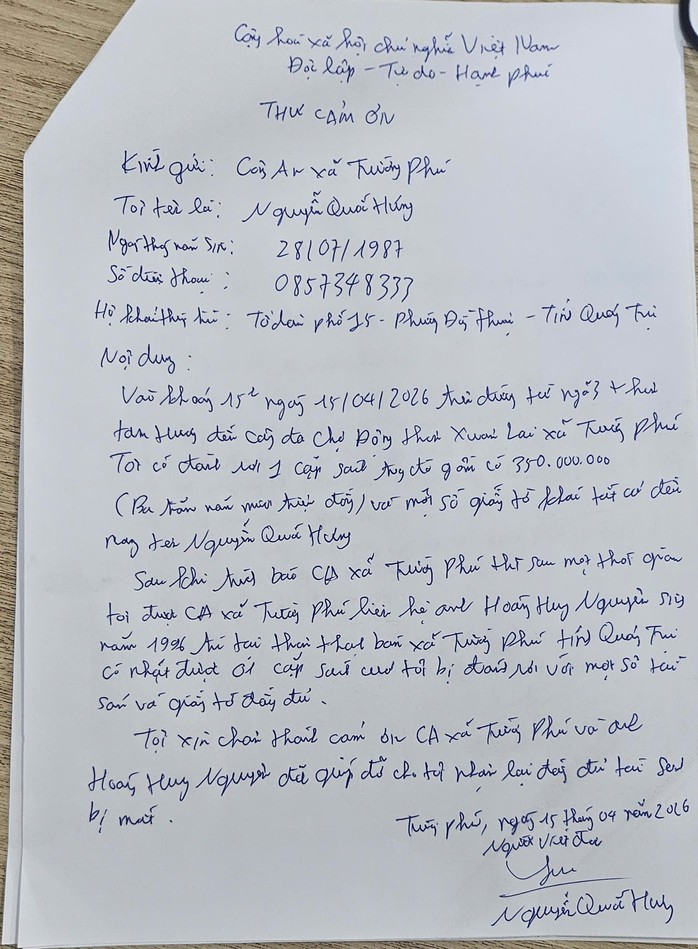 Cộng hoà xã hội chủ nghĩa Việt Nam
Độc lập - Tự do - Hạnh phúc
THƯ CẢM ƠN
Kính gửi: Công An xã Trường Phú
Tôi tên là: Nguyễn Quốc Hưng
Ngày tháng năm sinh: 28/07/1987
Số điện thoại: 0857348333
Hộ khẩu thường trú: Tổ dân phố 15 - Phường Đồng Thuận - Tỉnh Quảng Trị
Nội dung:
Vào khoảng 15h ngày 15/04/2026 trên đường từ ngã 3
đến cây đa chợ Động thôn Xuân Lai xã Trường Phú
Tôi có đánh rơi 1 cặp sách trong đó gồm có 350.000.000
(Ba trăm năm mươi triệu đồng) và một số giấy tờ khác tất cả đều
mang tên Nguyễn Quốc Hưng
Sau khi trình báo CA xã Trường Phú thì sau một thời gian
tôi được CA xã Trường Phú liên hệ anh Hoàng Huy Nguyên sinh
năm 1996 trú tại thôn bang xã Trường Phú tỉnh Quảng Trị
có nhặt được 01 cặp sách của tôi bị đánh rơi với một số tài
sản và giấy tờ đầy đủ.
Tôi xin chân thành cảm ơn CA xã Trường Phú và anh
Hoàng Huy Nguyên đã giúp đỡ cho tôi nhận lại đầy đủ tài sản
bị mất.
Trường Phú, ngày 15 tháng 04 năm 2026
Người viết đơn
Nguyễn Quốc Hưng